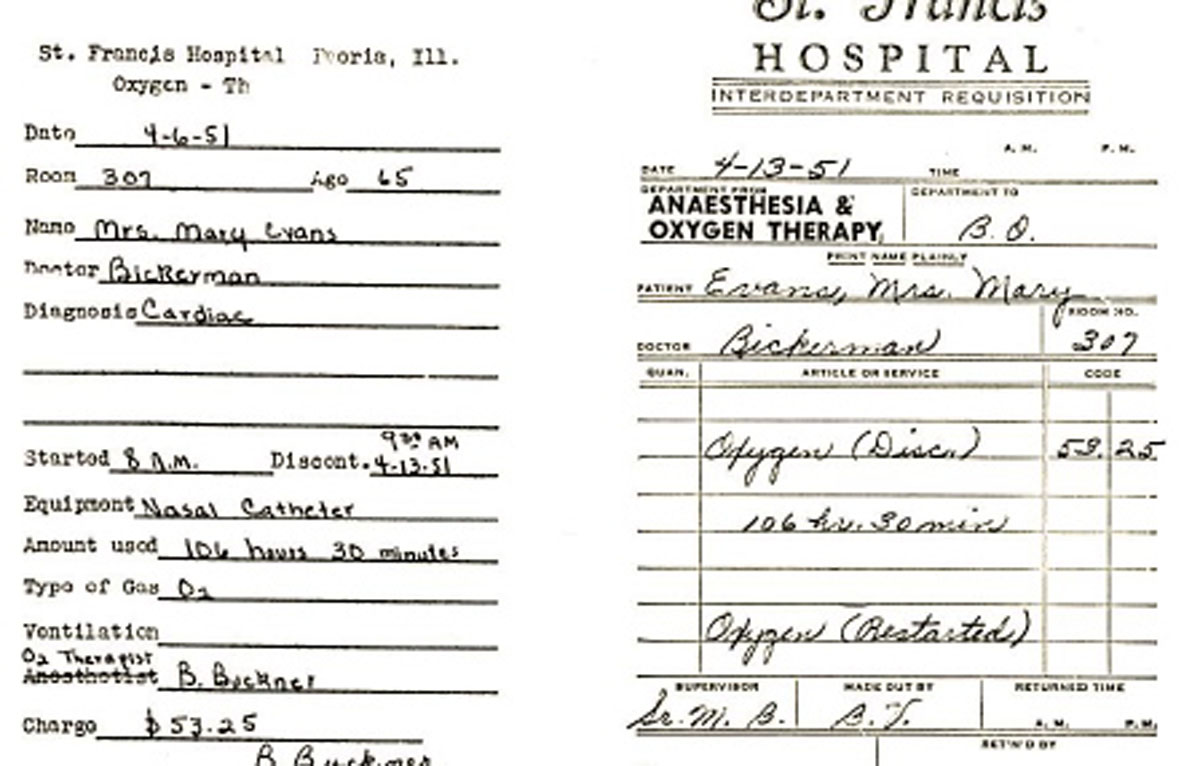 St. Francis Hospital Peoria, Ill.
Oxygen - Th
Date 4-6-51
Room 307 Age 65
Name Mrs. Mary Evans
Doctor Bickerman
Diagnosis Cardiac
9:30 AM
Started 8 A.M. Discont. 4-13-51
Equipment Nasal Catheter
Amount used 106 hours 30 minutes
Type of Gas O2
Ventilation
O2 Therapist
Anesthetist B. Buckner
Charge $53.25
B Buckner
St. Francis
HOSPITAL
INTERDEPARTMENT REQUISITION
A. M. P. M.
DATE 4-13-51 TIME
DEPARTMENT FROM DEPARTMENT TO
ANAESTHESIA &
OXYGEN THERAPY B. O.
PRINT NAME PLAINLY
PATIENT Evans, Mrs. Mary
ROOM NO.
DOCTOR Bickerman 307
QUAN. ARTICLE OR SERVICE CODE
Oxygen (Disc.) 53.25
106 hr. 30 min
Oxygen (Restarted)
SUPERVISOR MADE OUT BY RETURNED TIME
Sr. M. B. B. J. A. M. P. M.
RET'N'D BY